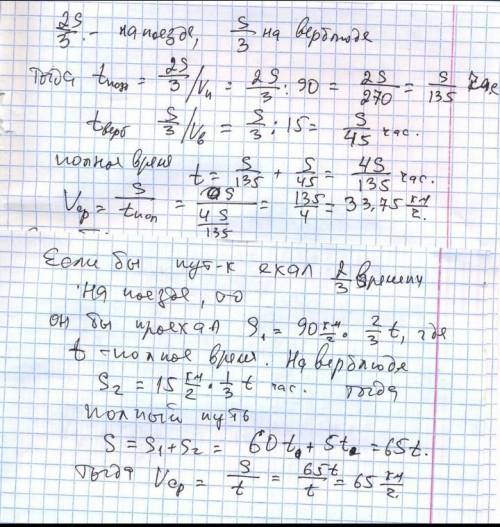 2S/3 - на поезде, S/3 на верблюде
тогда tпоез = 2S/3 / Vп = 2S/3 : 90 = 2S/270 = S/135 час
tверб S/3 / Vв = S/3 : 15 = S/45 час.
полное время t = S/135 + S/45 = 4S/135 час.
Vср = S/tпол = S/(4S/135) = 135/4 = 33,75 км/ч.
Если бы пут-к ехал 2/3 времени
на поезде, то
он бы проехал S₁ = 90 км/ч · 2/3 t, где
t - полное время. На верблюде
S₂ = 15 км/ч · 1/3 t час. тогда
полный путь
S = S₁ + S₂ = 60t + 5t = 65t.
Тогда Vср = S/t = 65t/t = 65 км/ч